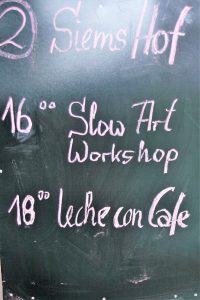 2 Siems Hof
16°° Slow Art
Workshop
18°° leche con Cafe